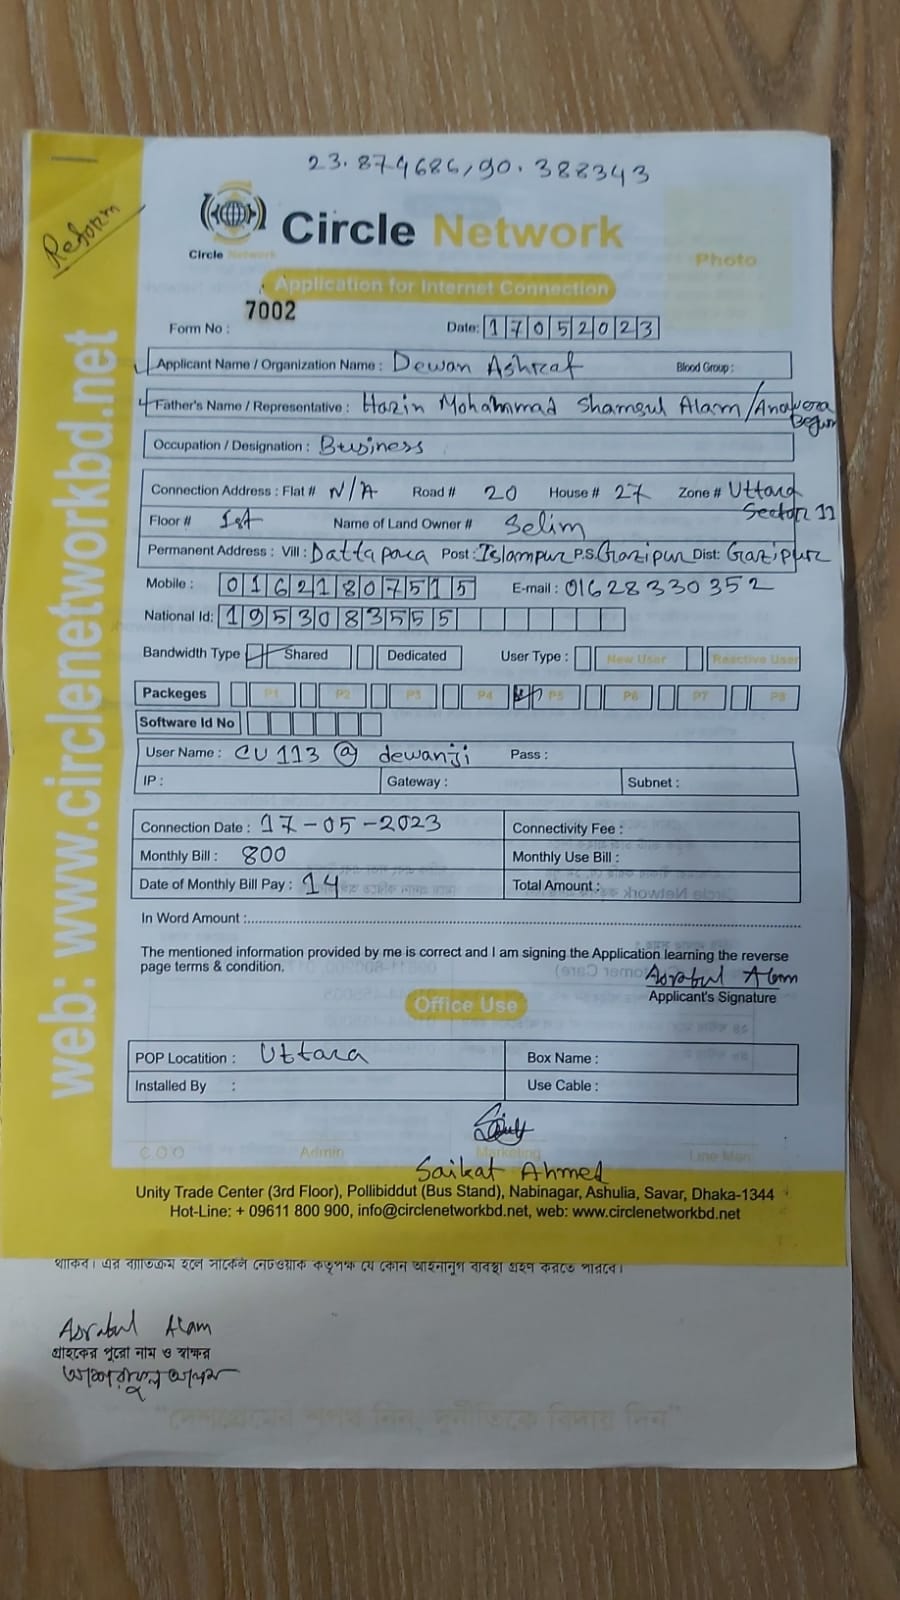 23.874686,90.388343
Reform
Circle Network
Circle Network
Photo
Application for Internet Connection
Form No : 7002
Date: 17052023
Applicant Name / Organization Name : Dewan Ashraf Blood Group :
Father's Name / Representative : Hazin Mohammad Shamsul Alam/Anawera Begum
Occupation / Designation : Business
Connection Address : Flat # N/A Road # 20 House # 27 Zone # Uttara Sector 11
Floor # 1st Name of Land Owner # Selim
Permanent Address : Vill : Dattapara Post : Islampur P.S. Gazipur Dist: Gazipur
Mobile : 01621807515 E-mail : 01628330352
National Id: 1953083555
Bandwidth Type Shared Dedicated User Type : New User Reactive User
Packeges P1 P2 P3 P4 P5 P6 P7 P8
Software Id No
User Name : CU113@dewanji Pass :
IP : Gateway : Subnet :
Connection Date : 17-05-2023 Connectivity Fee :
Monthly Bill : 800 Monthly Use Bill :
Date of Monthly Bill Pay : 14 Total Amount :
In Word Amount :
The mentioned information provided by me is correct and I am signing the Application learning the reverse
page terms & condition.
Asrabul Alam
Applicant's Signature
Office Use
POP Locatition : Uttara Box Name :
Installed By : Use Cable :
C.O.O Admin Marketing Line Man
Saikat Ahmed
Unity Trade Center (3rd Floor), Pollibiddut (Bus Stand), Nabinagar, Ashulia, Savar, Dhaka-1344
Hot-Line: + 09611 800 900, info@circlenetworkbd.net, web: www.circlenetworkbd.net
web: www.circlenetworkbd.net
থাকিব। এর ব্যাতিক্রম হলে সার্কেল নেটওয়ার্ক কতৃপক্ষ যে কোন আইনানুগ ব্যবস্থা গ্রহণ করতে পারবে।
Asrabul Alam
গ্রাহকের পুরো নাম ও স্বাক্ষর
আশরাফুল আলম
"দেশপ্রেমের শপথ নিন, দুর্নীতিকে বিদায় দিন"